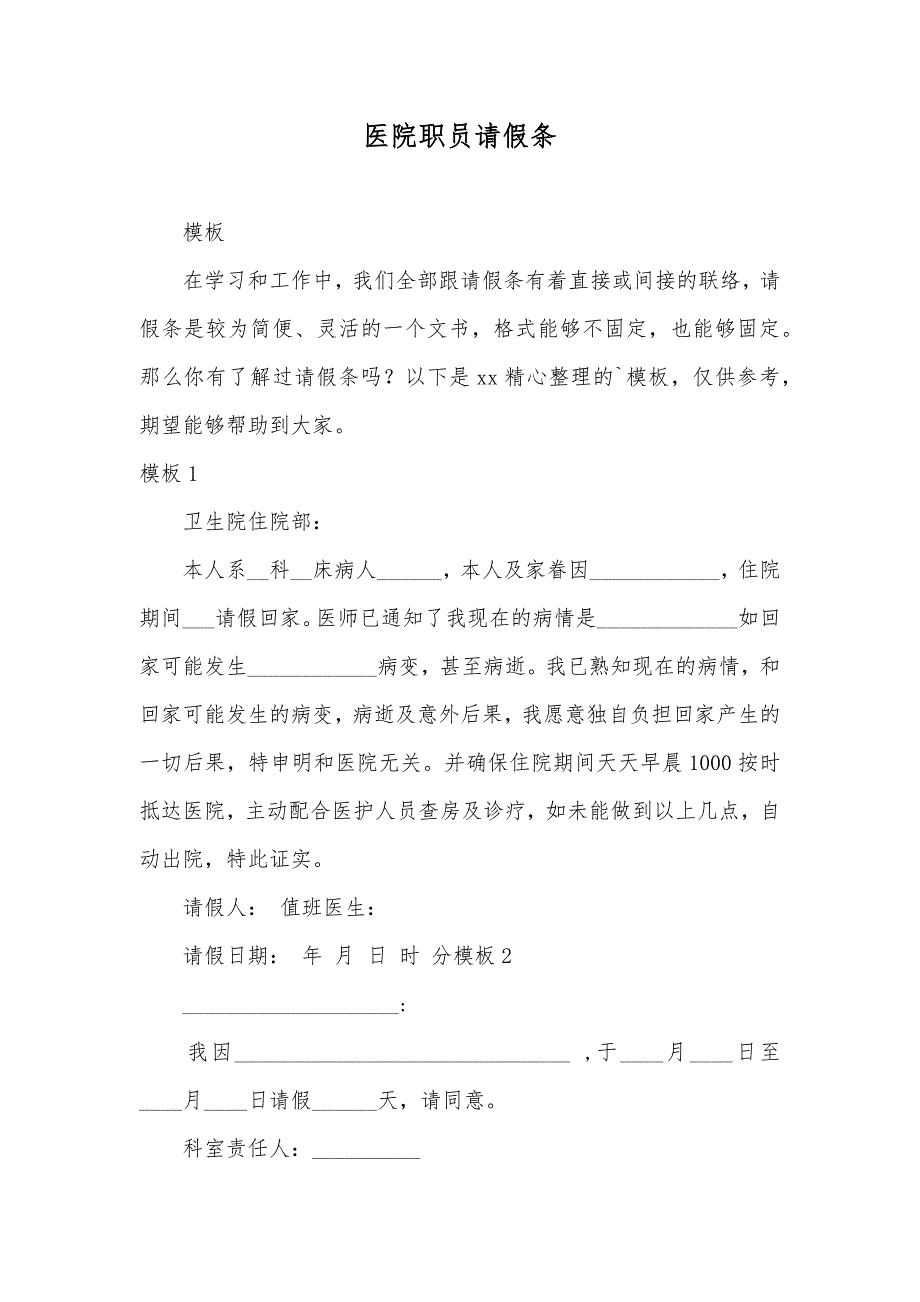 医院职员请假条
模板
在学习和工作中，我们全部跟请假条有着直接或间接的联络，请
假条是较为简便、灵活的一个文书，格式能够不固定，也能够固定。
那么你有了解过请假条吗？以下是 xx 精心整理的`模板，仅供参考，
期望能够帮助到大家。
模板 1
卫生院住院部：
本人系__科__床病人______，本人及家眷因____________，住院
期间___请假回家。医师已通知了我现在的病情是_____________如回
家可能发生____________病变，甚至病逝。我已熟知现在的病情，和
回家可能发生的病变，病逝及意外后果，我愿意独自负担回家产生的
一切后果，特申明和医院无关。并确保住院期间天天早晨 1000 按时
抵达医院，主动配合医护人员查房及诊疗，如未能做到以上几点，自
动出院，特此证实。
请假人： 值班医生：
请假日期： 年 月 日 时 分模板 2
____________________:
我因_______________________________ ,于____月____日至
____月____日请假______天，请同意。
科室责任人：__________